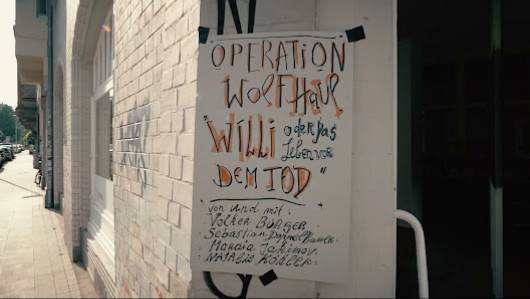 OPERATION
WolF Haul
"WILLi oder Das
Leben vor
DEM TOD"
von und mit:
Volker BÜRGER
Sebastian
Maraia Jakimov
NATAlie KÖHLER